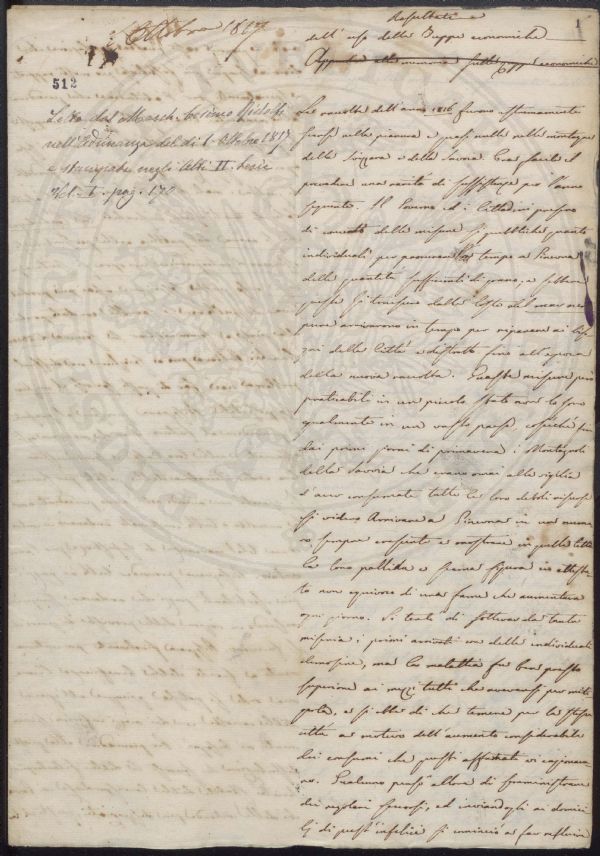 Ottobre 1817
1
512
Letta dal March. Cosimo Ridolfi
nell'Adunanza del dì 1 Ottobre 1817
e stampata negli Atti II. Serie
Vol. I. pag. 170
Resultati
dell'uso delle Zuppe economiche
Appendice alla memoria sulle Zuppe economiche
Le raccolte dell'anno 1816 furono estremamente
scarse nella pianura e quasi nulle nelle montagne
della Svizzera e della Savoia. Era facile il
prevedere una rarità di sussistenze per l'anno
seguente. Il Governo ed i Cittadini presero
di concerto delle misure sì pubbliche quanto
individuali per procurare a tempo a Ginevra
delle quantità sufficienti di grano, e sebbene
queste si tenessero dalle Coste del mar nero
pure arrivarono in tempo per riparare ai biso-
gni della Città e distretto fino all'epoca
della nuova raccolta. Queste misure però
praticabili in un piccolo stato non lo sono
egualmente in un vasto paese, cosicché fin
dai primi giorni di primavera i Montagnoli
della Savoia che erano omai alla vigilia
d'aver consumate tutte le loro deboli risorse
si videro arrivare a Ginevra in un nume-
ro sempre crescente e mostrare in quella Città
la loro pallida e scarna figura in attesta-
to non equivoco di una fame che aumentava
ogni giorno. Si tentò di sollevare da tanta
miseria i primi arrivati con delle individuali
elemosine, ma la malattia fu ben presto
superiore ai mezzi tutti che avevansi per miti-
garla, e si ebbe di che temere per la stessa
città a motivo dell'aumento considerabile
dei consumi che questi affamati vi cagionava-
no. Pensò allora di somministrare
dei regolari soccorsi, ed inviandogli ai domici-
lj di questi infelici si cominciò a far rifluire